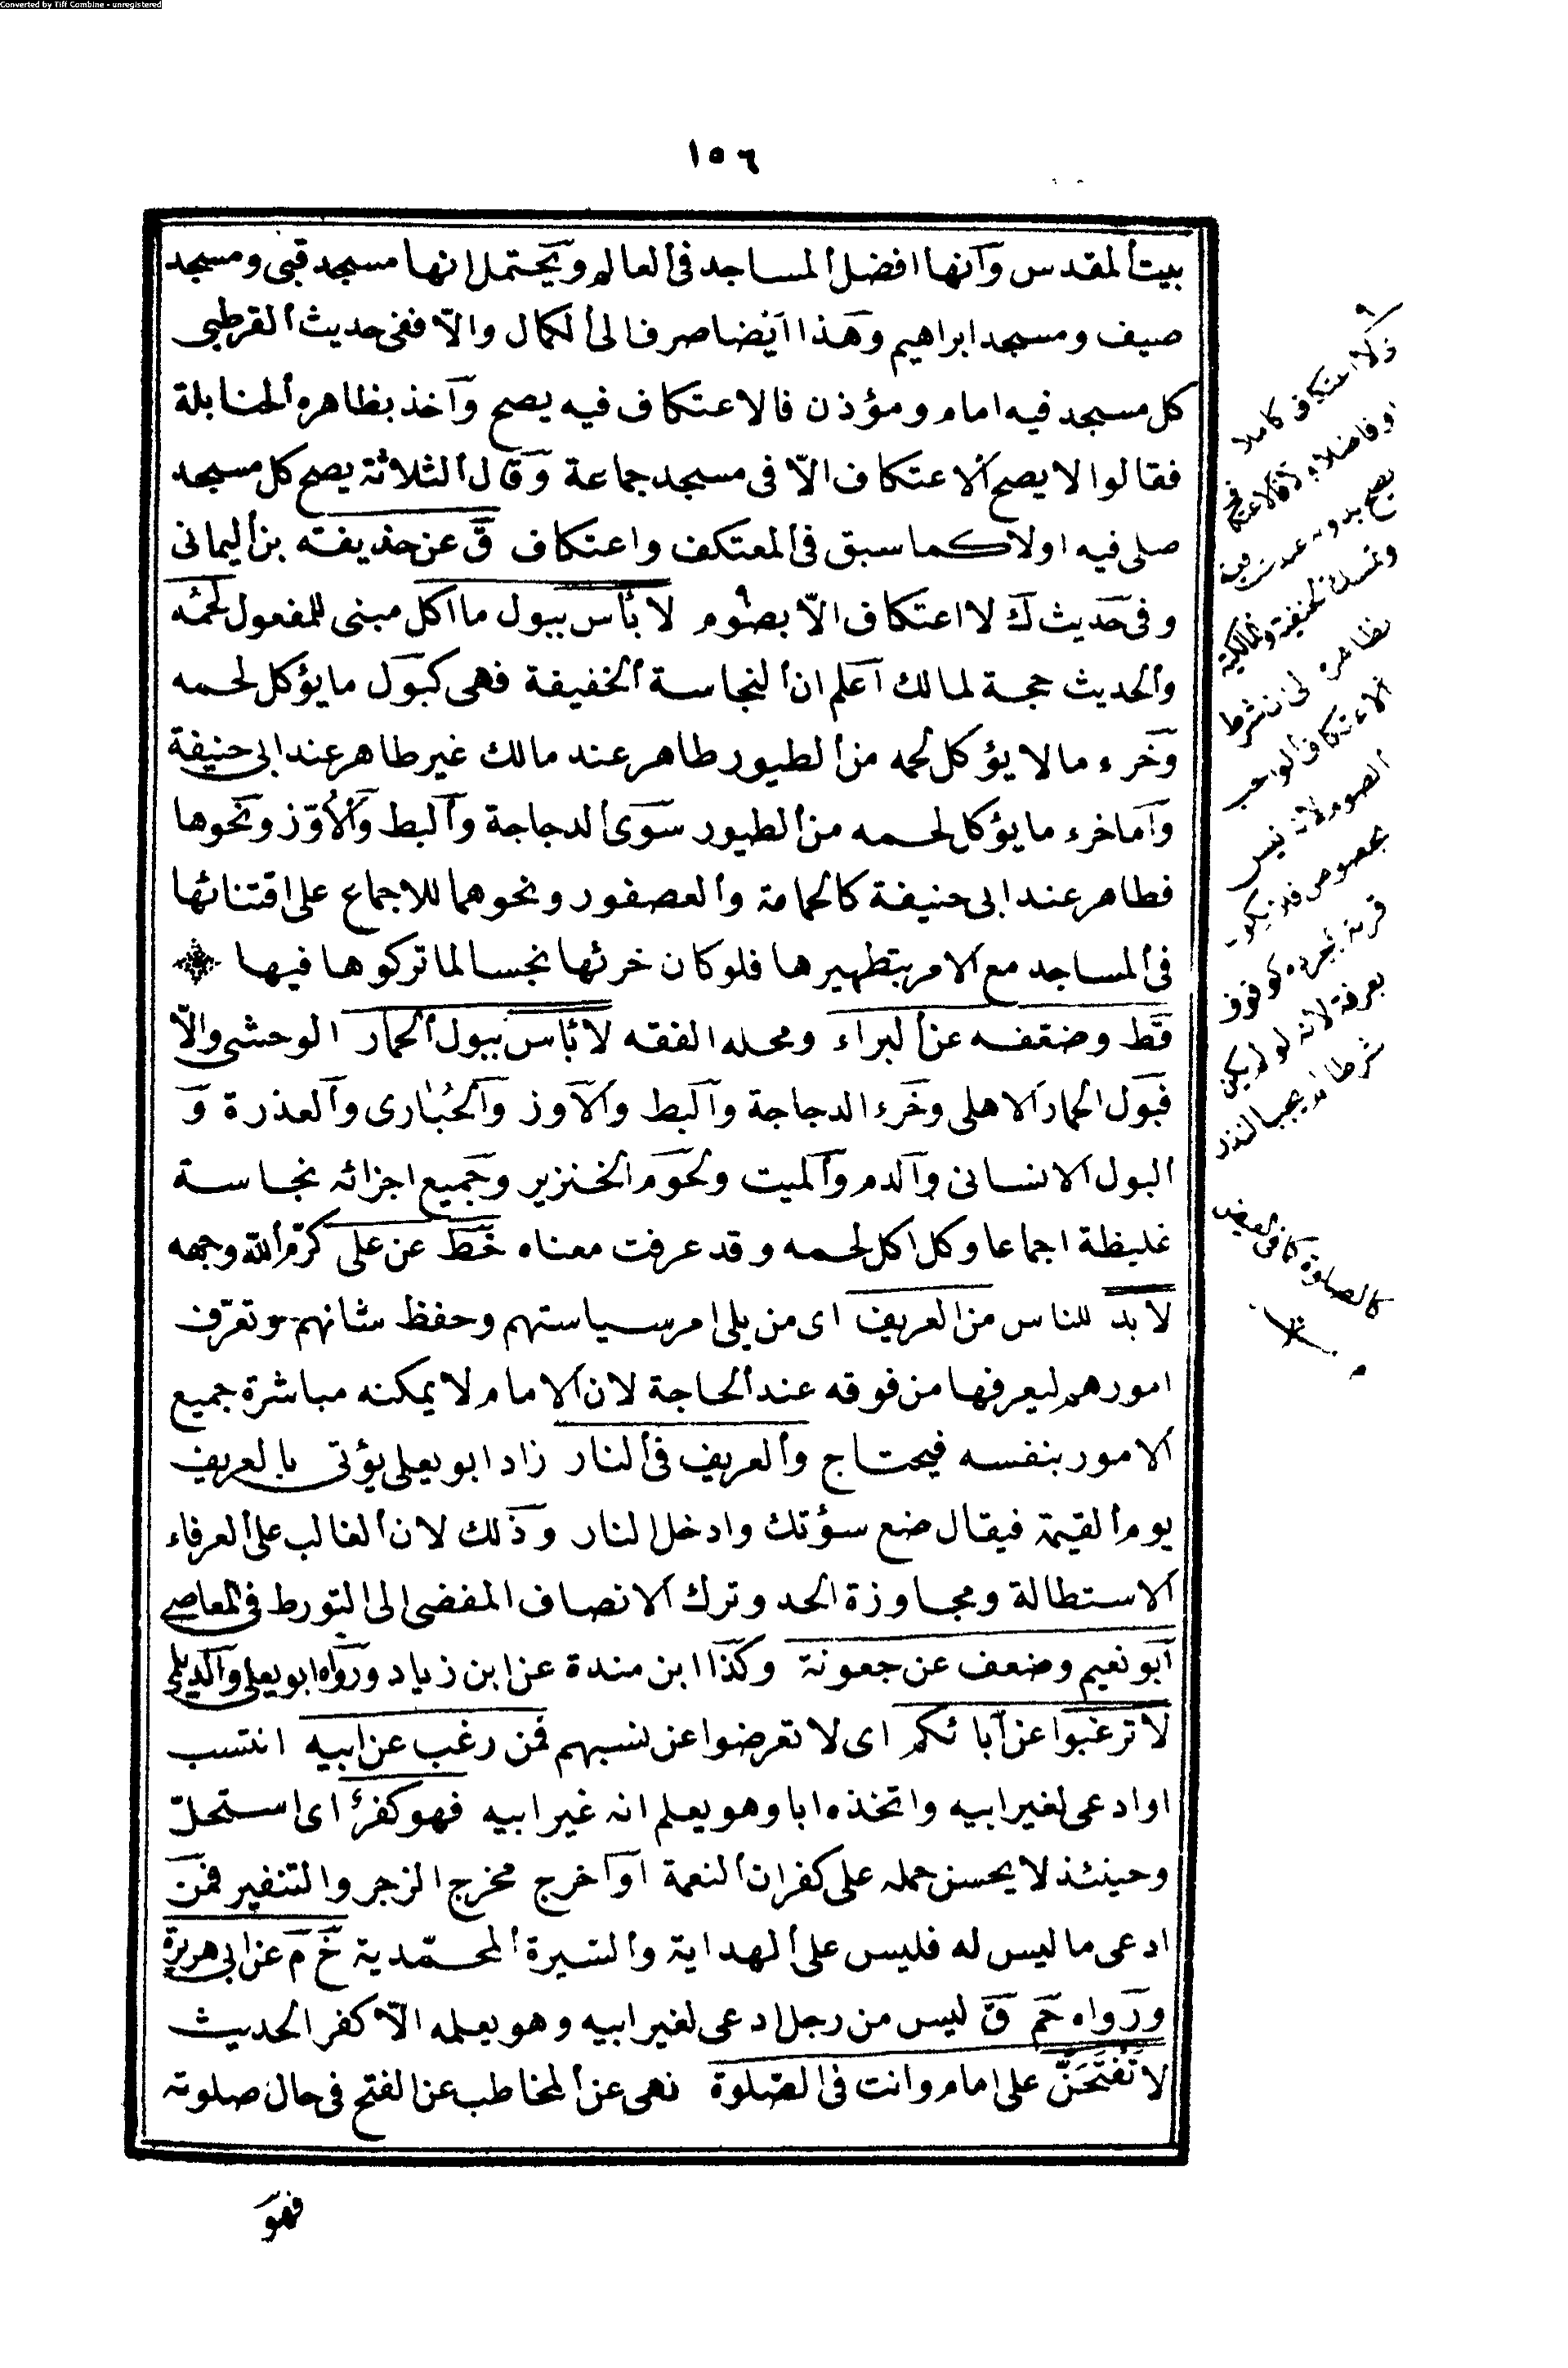 Converted by Tiff Combine - unregistered
١٥٦
بيت المقدس وانها افضل المساجد فى العالم ويحتمل انها مسجد قبى ومسجد
صيف ومسجد ابراهيم وهذا ايضا صرفا لى الكمال والّا ففى حديث القرطبى
كل مسجد فيه امام ومؤذن فالاعتكاف فيه يصح وآخذ بظاهره الحنابلة
فقالوا لا يصح الاعتكاف الّا فى مسجد جماعة وقال الثلاثة يصح كل مسجد
صلى فيه اولا كما سبق فى المعتكف واعتكاف ق عن حذيفته بن اليمانى
وفى حديث ك لا اعتكاف الّا بصوم لا بأس ببول ما اكل مبنى للمفعول لحمُه
والحديث حجة لمالك اعلم ان النجاسة الخفيفة فهى كبول ما يؤكل لحمه
وخرء ما لا يؤكل لحمه من الطيور طاهر عند مالك غير طاهر عند ابى حنيفة
واما خرء ما يؤكل لحمه من الطيور سوى الدجاجة والبط والاوّز ونحوها
فطاهر عند ابى حنيفة كالحمامة والعصفور ونحوهما للاجماع على اقتنائها
فى المساجد مع الامر بتطهيرها فلو كان خرئها نجسا لما تركوها فيها
قط وضقفه عن البراء ومحله الفقه لا بأس ببول الحمار الوحشى والّا
فبول الحمار الاهلى وخرء الدجاجة والبط والاوز والحُبارى والعذرة و
البول الانسانى والدم والميت ولحوم الخنزير وجميع اجزائه نجاسة
غليظة اجماعا وكل اكل لحمه وقد عرفت معناه خط عن على كرّم الله وجهه
لا بد للناس من العريف اى من يلى امر سياستهم وحفظ شانهم وتعرّف
امورهم ليعرفها من فوقه عند الحاجة لان الامام لا يمكنه مباشرة جميع
الامور بنفسه فيحتاج والعريف فى النار زاد ابو يعلى يؤتى بالعريف
يوم القيمة فيقال ضع سؤتك وادخل النار وذلك لان الغالب على العرفاء
الاستطالة ومجاوزة الحد وترك الانصاف المفضى الى التورط فى المعاصى
ابو نعيم وضعف عن جعونة وكذا ابن مندة عن ابن زياد ورواه ابو يعلى والديلمى
لا ترغبوا عن آبائكم اى لا تعرضوا عن نسبهم فمن رغب عن ابيه انتسب
او ادعى لغير ابيه واتخذه ابا وهو يعلم انه غير ابيه فهو كفرٌ اى استحلّ
وحينئذ لا يحسن حمله على كفران النعمة او اخرج مخرج الزجر والتنفير فمن
ادعى ما ليس له فليس على الهداية والسّيرة المحمّدية خ م عن ابى هريرة
ورواه حم ق ليس من رجل ادعى لغير ابيه وهو يعلمه الّا كفر الحديث
لا تَفتَحَنّ على امام وانت فى الصّلوة نهى عن المخاطب عن الفتح فى حال صلوته
فهو
ولا اعتكاف كاملا
او فاضلا
يصح بدونه عند
وتمسك الحنفية والمالكية
بظاهره
الاعتكاف الواجب
الصوم لانه ليس
بخصوص
قربة بمجرده كوقوف
بعرفة لانه لو لم يكن
شرطا لم يجب بالنذر
كالصلوة